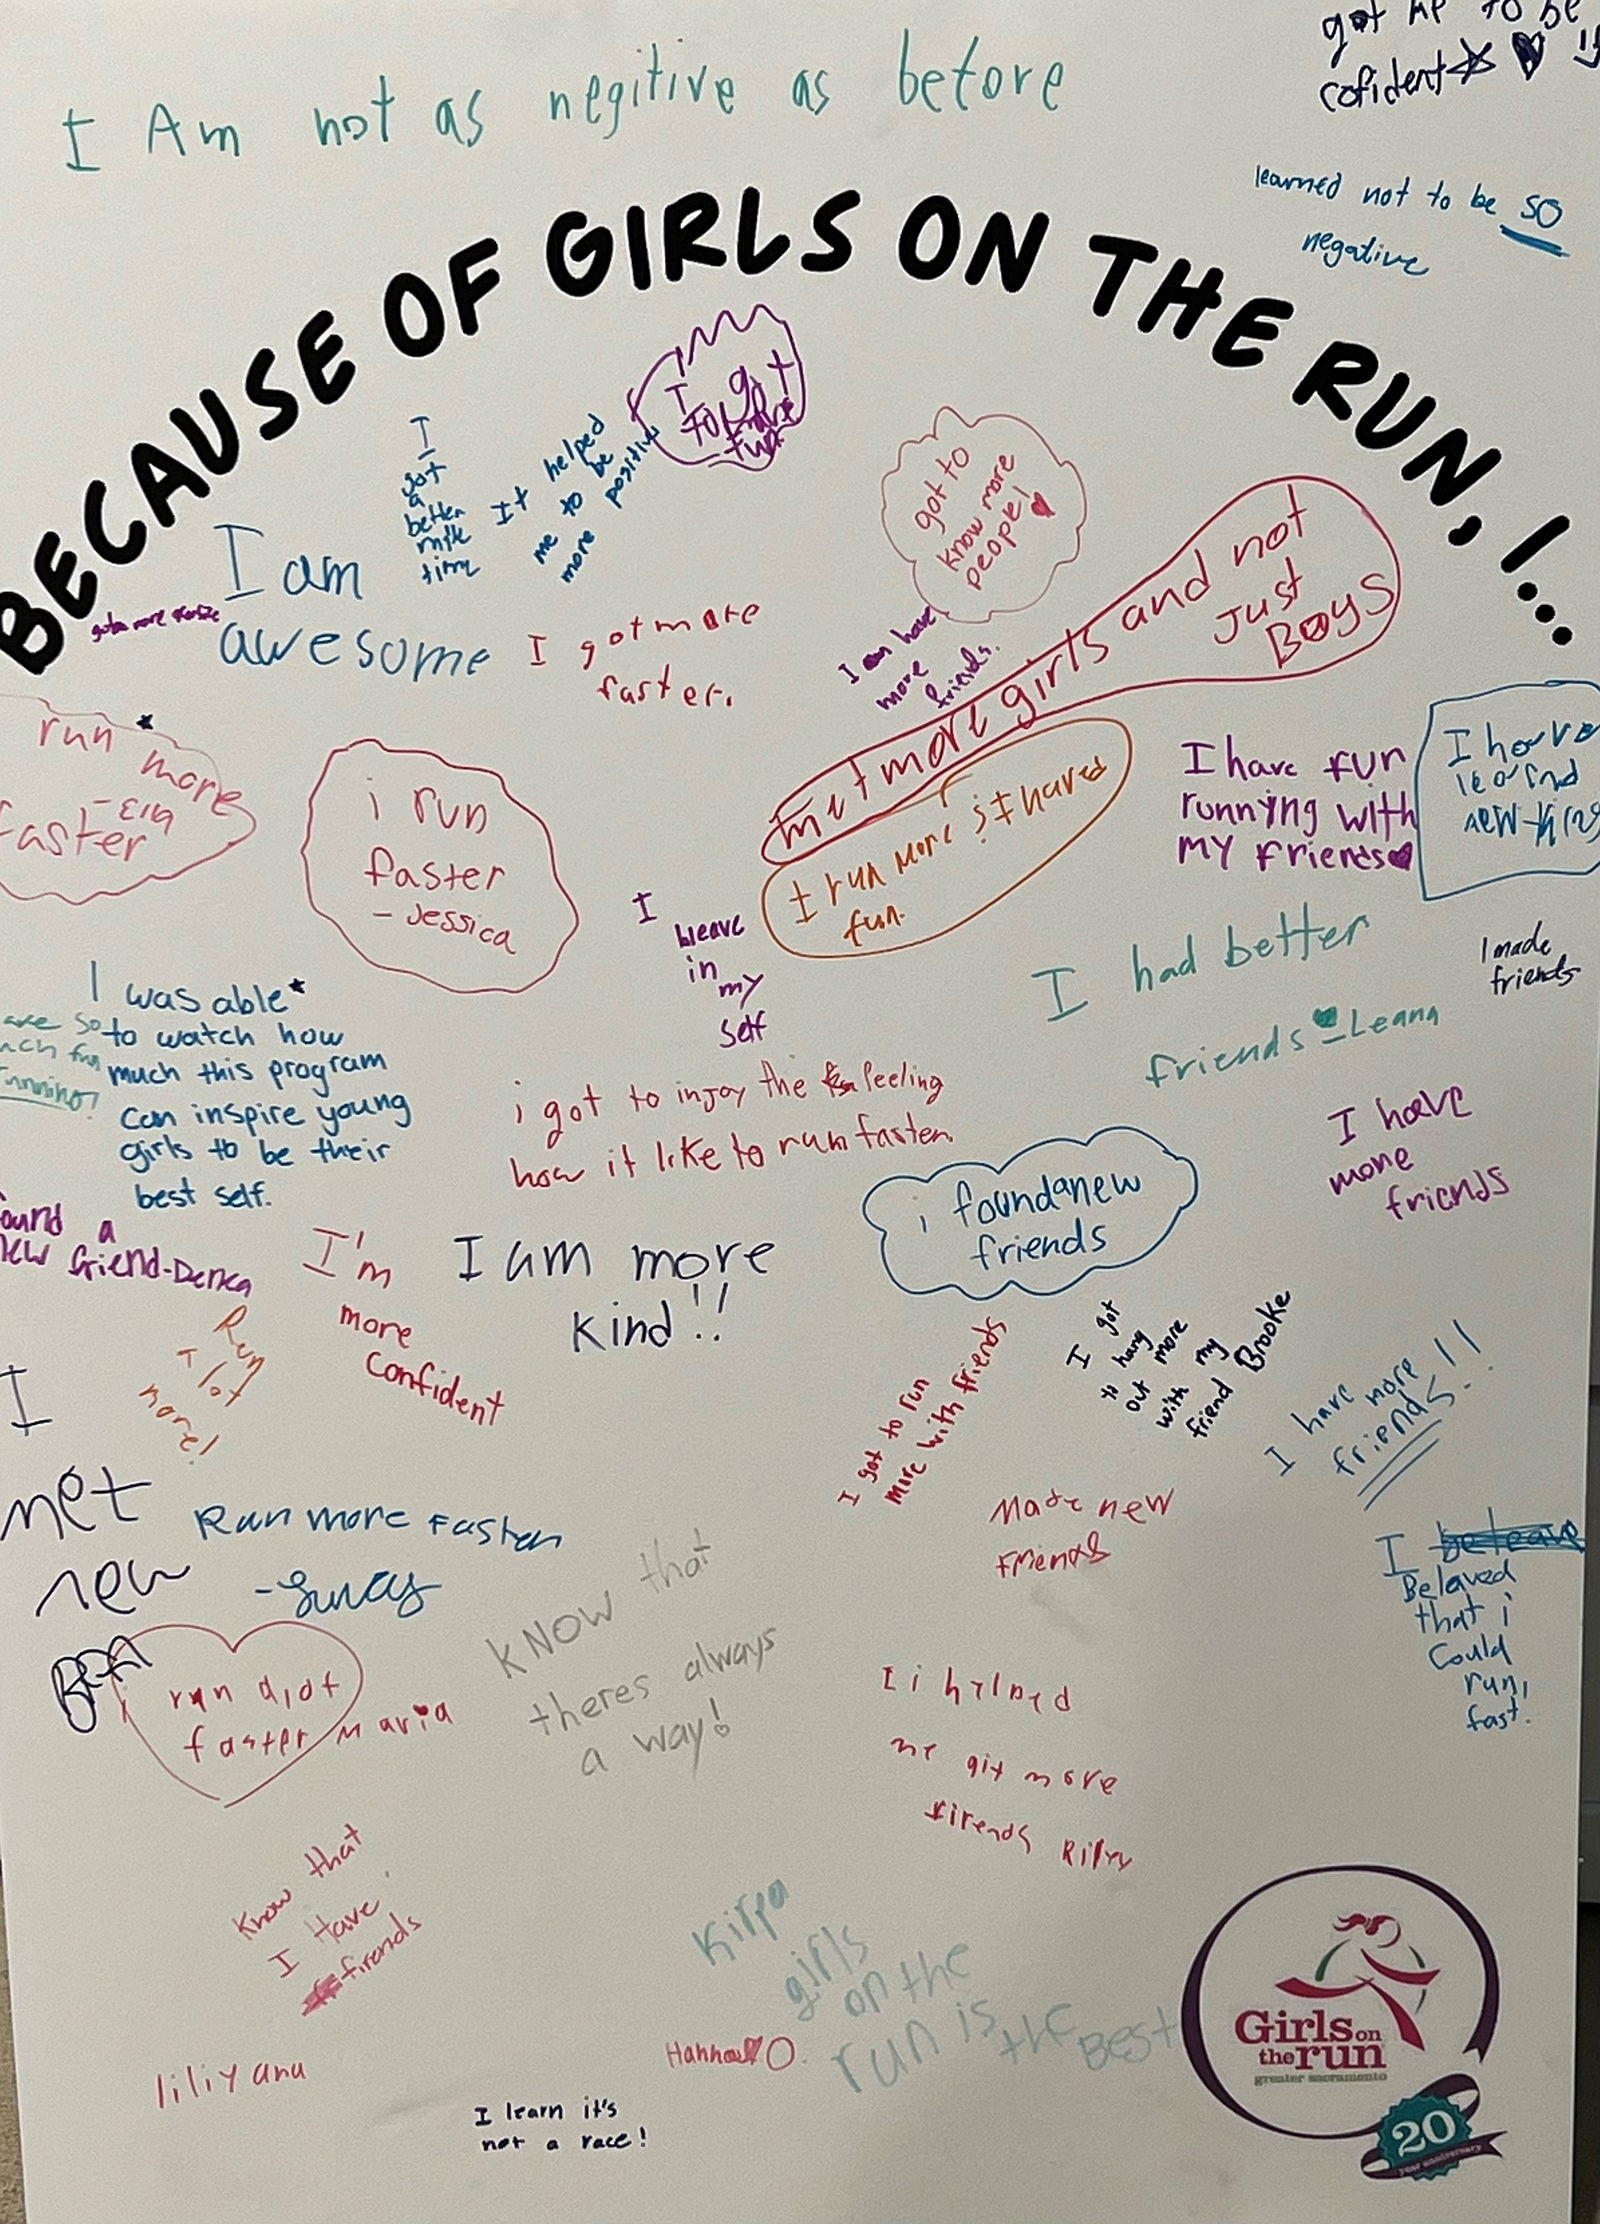 got me to be
cofident
I Am not as negitive as before
learned not to be so
negative
BECAUSE OF GIRLS ON THE RUN, I...
I got
to have
fun
I
got
a
better
mile
time
It helped
me to be
more positive
got to
know more
people!
I am
awesome
I got more
faster.
I am have
more
friends.
met more girls and not
just
Boys
run more
faster
i run
faster
- Jessica
I run more ; I haved
fun.
I have fun
running with
my friends
I have
I
bleave
in
my
self
I had better
friends - Leana
I made
friends
I was able
to watch how
much this program
can inspire young
girls to be their
best self.
are so
fun
running!
i got to injoy the feeling
how it like to run faster.
I have
more
friends
i foundanew
friends
a
new friend-
I'm
more
confident
I am more
kind!!
Run
a lot
more!
I got to run
more with friends
I got
to hang
out more
with my
friend Brooke
I have more
friends!!
I
met
new
Run more Faster
Made new
Friends
I beleave
Belaved
that i
could
run,
fast.
KNOW that
theres always
a way!
i run a lot
faster Maria
I i helped
me git more
firends Riley
Know that
I Have
firends
liliyana
Kirpa
girls
on the
run is the BEST
Hanna O
I learn it's
not a race!
Girls on
the run
greater sacramento
20
year anniversary